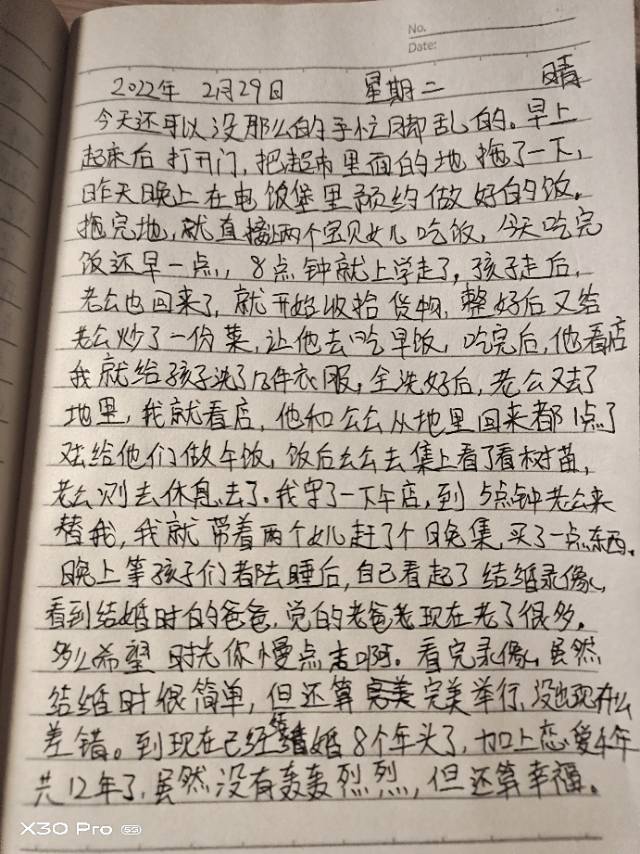 No.
Date:
2022年 2月29日 星期二 晴
今天还可以没那么的手忙脚乱的。早上
起来后打开门,把超市里面的地拖了一下,
昨天晚上在电饭堡里预约做好的饭。
拖完地,就直接让两个宝贝女儿吃饭,今天吃完
饭还早一点,8点钟就上学走了,孩子走后,
老公也回来了,就开始收拾货物,整好后又给
老公炒了一份菜,让他去吃早饭,吃完后,他看店
我就给孩子洗了几件衣服,全洗好后,老公又去了
地里,我就看店,他和公公从地里回来都1点了
又给他们做午饭,饭后公公去集上看了看树苗,
老公则去休息去了.我守了一下午店,到5点钟老公来
替我,我就带着两个女儿赶了个晚集,买了一点东西.
晚上等孩子们都去睡后,自己看起了结婚录像,
看到结婚时的爸爸,觉的老爸老现在老了很多。
多么希望时光你慢点走啊。看完录像,虽然
结婚时很简单,但还算完美举行,没出现什么
差错。到现在已经结婚8个年头了,加上恋爱4年
共12年了,虽然没有轰轰烈烈,但还算幸福。
X30 Pro 5G